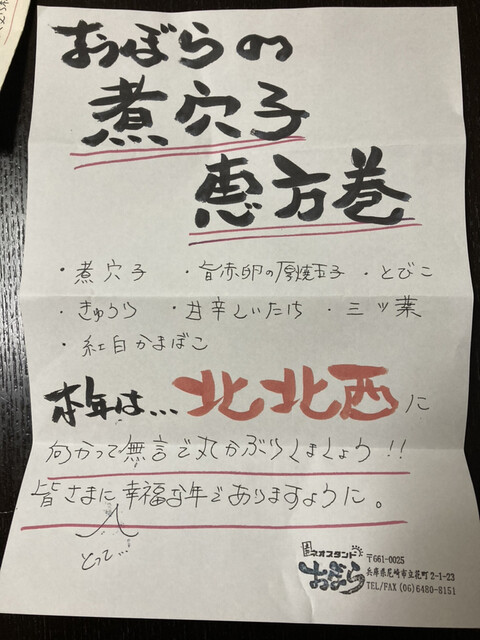 おづぼらの
煮穴子
恵方巻
・煮穴子 ・旨赤卵の厚焼玉子 ・とびこ
・きゅうり ・甘辛しいたけ ・三ツ葉
・紅白かまぼこ
本年は…北北西に
向かって無言で丸かぶりしましょう!!
皆さまに幸福な年でありますように。
とって…
ネオスタンド
おづぼら
〒661-0025
兵庫県尼崎市立花町2-1-23
TEL/FAX (06)6480-8151